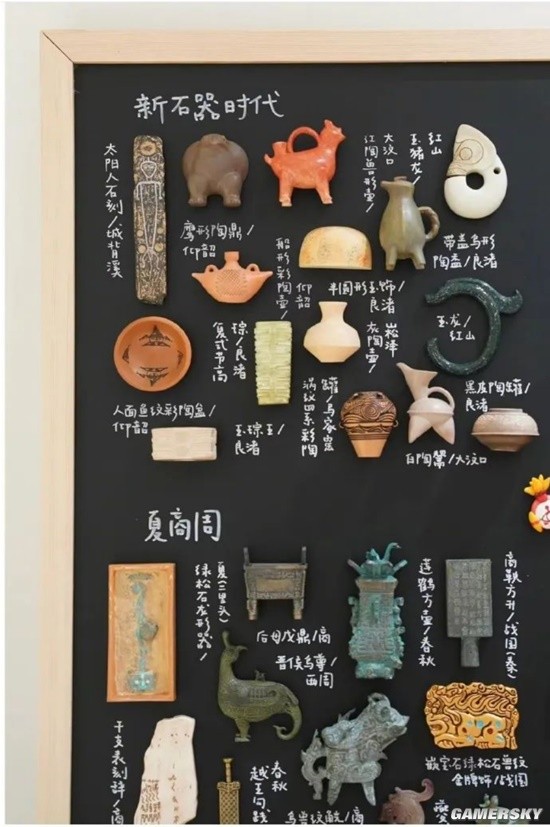 新石器时代
太阳人石刻/城背溪
鹰形陶鼎/
仰韶
大汶口
红陶兽形壶/
红山
玉猪龙/
带盖鸟形
陶盉/良渚
船形彩陶壶/
仰韶
半圆形玉饰/
良渚
玉龙/
红山
琮/良渚
复式节高
崧泽
灰陶壶/
人面鱼纹彩陶盆/
仰韶
玉琮王/
良渚
罐/马家窑
涡纹四系彩陶
白陶鬶/大汶口
黑皮陶罐/
良渚
夏商周
夏(二里头)
绿松石龙形器/
后母戊鼎/商
晋侯鸟尊/
西周
莲鹤方壶/春秋
商鞅方升/战国(秦)
干支表刻辞/商
春秋
越王勾践
鸟兽纹觥/商
嵌宝石绿松石兽纹
金牌饰/战国
GAMERSKY